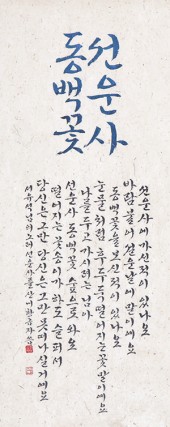 선운사
동백꽃
선운사에 가신 적이 있나요
바람 불어 설운 날에 말이예요
동백꽃을 보신 적이 있나요
눈물처럼 후두둑 떨어지는 꽃 말이예요
나를 두고 가시려는 님아
선운사 동백꽃 숲으로 와요
떨어지는 꽃송이가 하도 슬퍼서
당신은 그만 당신은 그만 못 떠나실 거예요